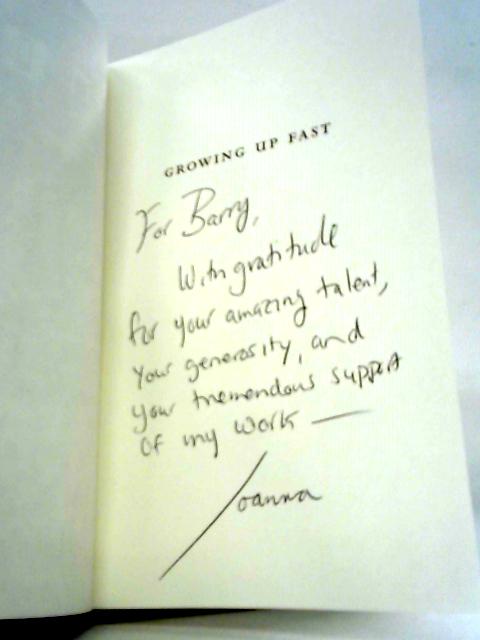 GROWING UP FAST
For Barry,
With gratitude
for your amazing talent,
your generosity, and
your tremendous support
of my work —
Joanna